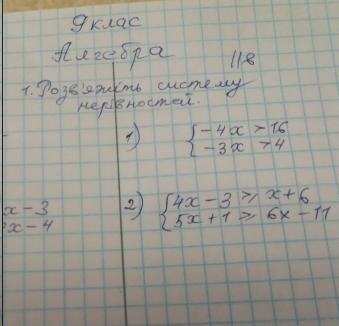 9 клас
Алгебра
II в
1. Розв'яжіть систему
нерівностей.
1) { -4x > 16
-3x > 4
2) { 4x - 3 ⩾ x + 6
5x + 1 ⩾ 6x - 11
x - 3
x - 4